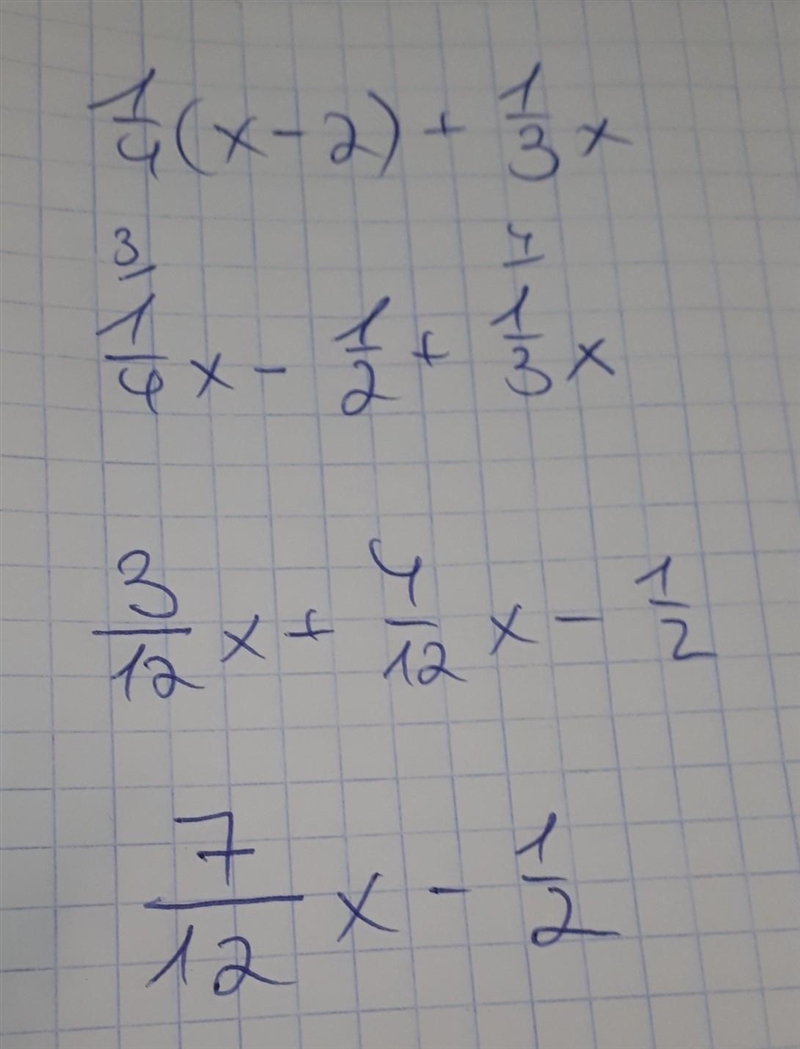 1/4(x-2) + 1/3x
3 4
1/4x - 1/2 + 1/3x
3/12x + 4/12x - 1/2
7/12x - 1/2